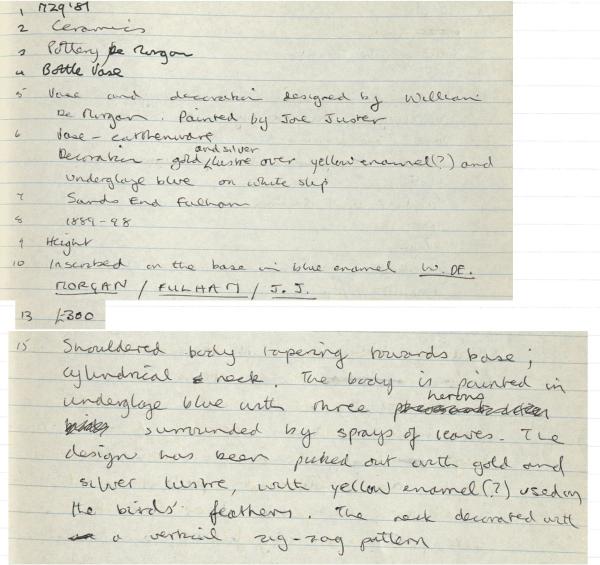 1 M29'87
2 Ceramics
3 Pottery De Morgan
4 Bottle Vase
5 Vase and decoration designed by William
De Morgan. Painted by Joe Juster
6 Vase - earthenware
and silver
Decoration - gold lustre over yellow enamel(?) and
underglaze blue on white slip
7 Sands End Fulham
8 1889-98
9 Height
10 Inscribed on the base in blue enamel W. DE.
MORGAN / FULHAM / J.J.
13 £300
15 Shouldered body tapering towards base;
cylindrical neck. The body is painted in
underglaze blue with three herons
surrounded by sprays of leaves. The
design has been picked out with gold and
silver lustre, with yellow enamel(?) used on
the birds' feathers. The neck decorated with
a vertical zig-zag pattern